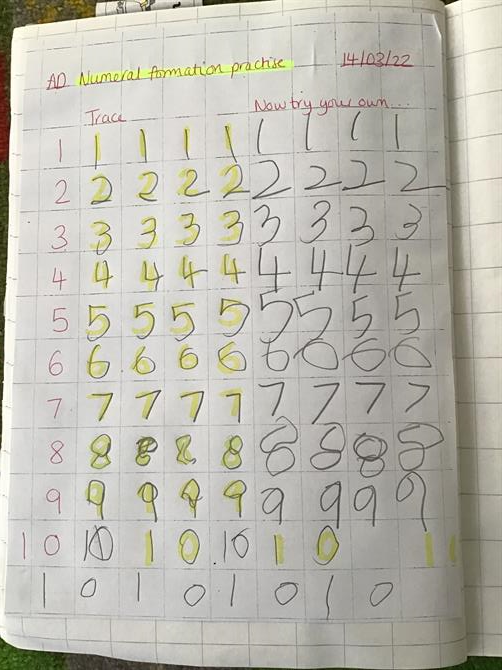 AD Numeral formation practise 14/03/22
Trace Now try your own...
1 1 1 1 1 1 1 1 1
2 2 2 2 2 2 2 2 2
3 3 3 3 3 3 3 3 3
4 4 4 4 4 4 4 4 4
5 5 5 5 5 5 5 5 5
6 6 6 6 6 6 6 6 6
7 7 7 7 7 7 7 7 7
8 8 8 8 8 8 8 8 8
9 9 9 9 9 9 9 9 9
10 10 10 10 10 1
1 0 1 0 1 0 1 0